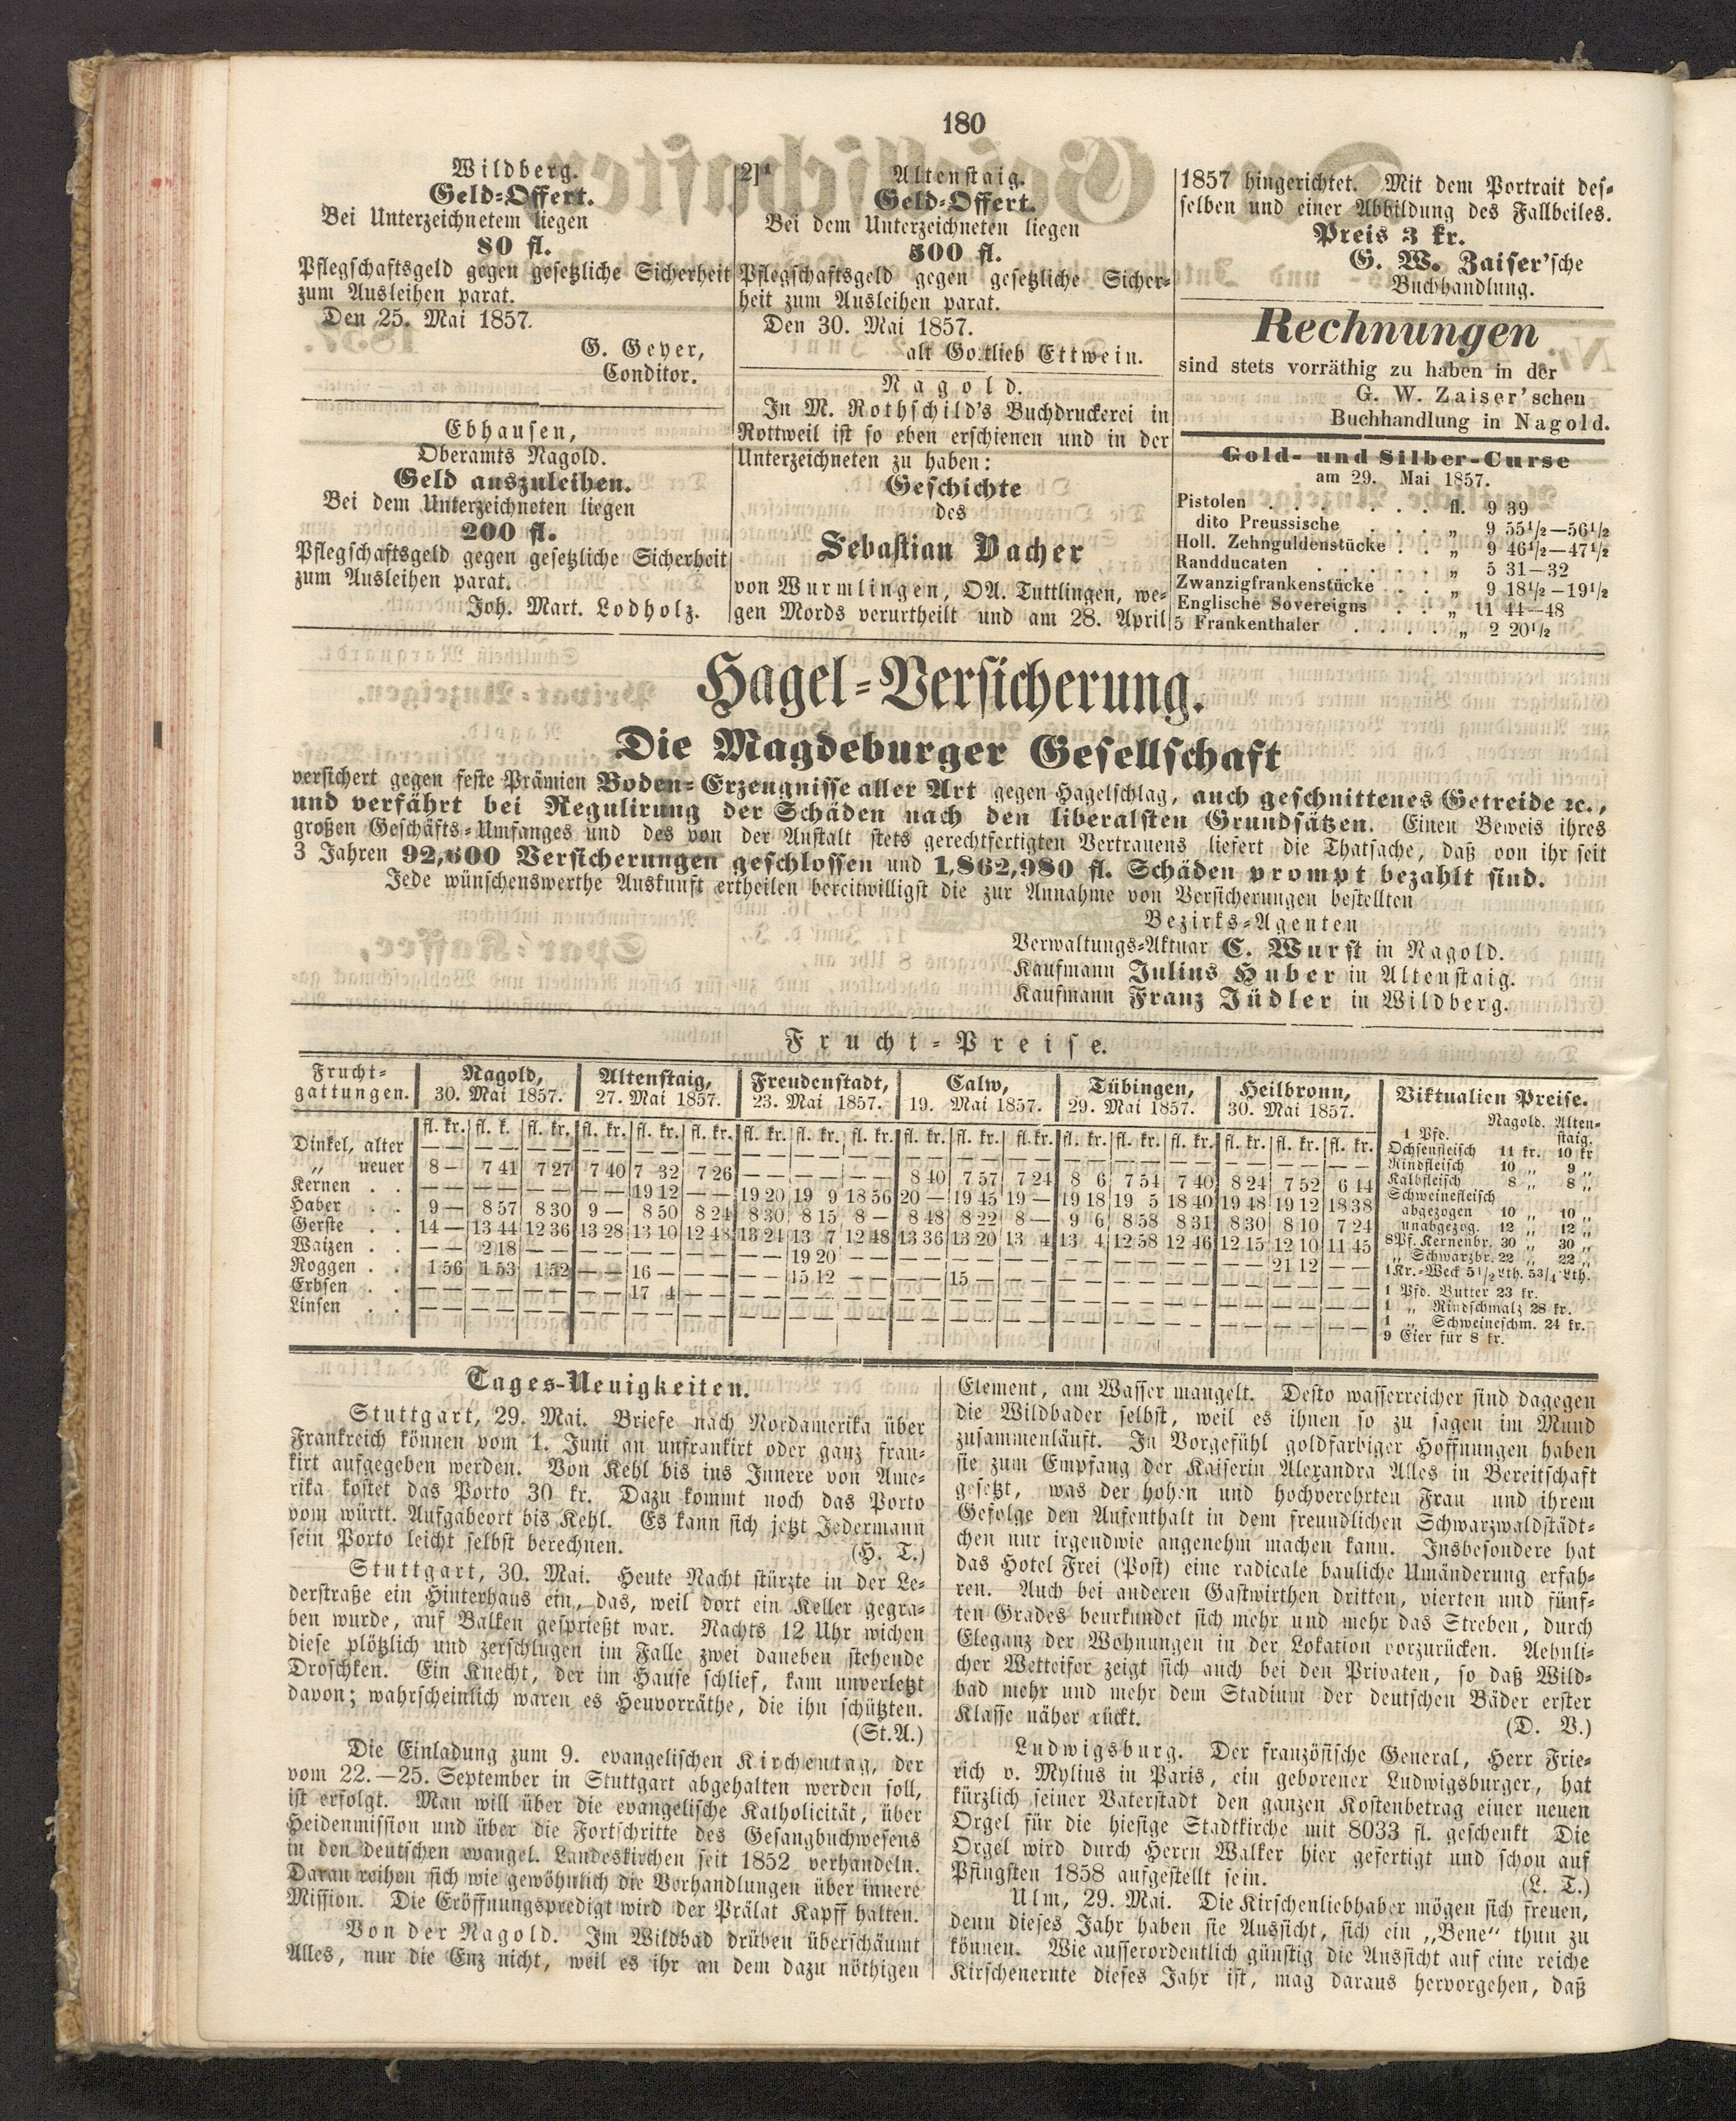 180
Wildberg.
Geld-Offert.
Bei Unterzeichnetem liegen
80 fl.
Pflegschaftsgeld gegen gesetzliche Sicherheit
zum Ausleihen parat.
Den 25. Mai 1857.
G. Geyer,
Conditor.
Ebhausen,
Oberamts Nagold.
Geld auszuleihen.
Bei dem Unterzeichneten liegen
200 fl.
Pflegschaftsgeld gegen gesetzliche Sicherheit
zum Ausleihen parat.
Joh. Mart. Lodholz.
2]¹ Altenstaig.
Geld-Offert.
Bei dem Unterzeichneten liegen
500 fl.
Pflegschaftsgeld gegen gesetzliche Sicher-
heit zum Ausleihen parat.
Den 30. Mai 1857.
alt Gottlieb Ettwein.
Nagold.
In M. Rothschild's Buchdruckerei in
Rottweil ist so eben erschienen und in der
Unterzeichneten zu haben:
Geschichte
des
Sebastian Bacher
von Wurmlingen, OA. Tuttlingen, we-
gen Mords verurtheilt und am 28. April
1857 hingerichtet. Mit dem Portrait des-
selben und einer Abbildung des Fallbeiles.
Preis 3 kr.
G. W. Zaiser'sche
Buchhandlung.
Rechnungen
sind stets vorräthig zu haben in der
G. W. Zaiser'schen
Buchhandlung in Nagold.
Gold- und Silber-Curse
am 29. Mai 1857.
Pistolen . . . . . . . fl. 9 39
dito Preussische . . . „ 9 55½—56½
Holl. Zehnguldenstücke . . „ 9 46½—47½
Randducaten . . . . . „ 5 31—32
Zwanzigfrankenstücke . . „ 9 18½—19½
Englische Sovereigns . . „ 11 44—48
5 Frankenthaler . . . . „ 2 20½
Hagel-Versicherung.
Die Magdeburger Gesellschaft
versichert gegen feste Prämien Boden-Erzeugnisse aller Art gegen Hagelschlag, auch geschnittenes Getreide ꝛc.,
und verfährt bei Regulirung der Schäden nach den liberalsten Grundsätzen. Einen Beweis ihres
großen Geschäfts-Umfanges und des von der Anstalt stets gerechtfertigten Vertrauens liefert die Thatsache, daß von ihr seit
3 Jahren 92,600 Versicherungen geschlossen und 1,862,980 fl. Schäden prompt bezahlt sind.
Jede wünschenswerthe Auskunft ertheilen bereitwilligst die zur Annahme von Versicherungen bestellten
Bezirks-Agenten
Verwaltungs-Aktuar C. Wurst in Nagold.
Kaufmann Julius Huber in Altenstaig.
Kaufmann Franz Jüdler in Wildberg.
Frucht-Preise.
Frucht-gattungen. Nagold, 30. Mai 1857. Altenstaig, 27. Mai 1857. Freudenstadt, 23. Mai 1857. Calw, 19. Mai 1857. Tübingen, 29. Mai 1857. Heilbronn, 30. Mai 1857.
fl. kr. fl. k. fl. kr. fl. kr. fl. kr. fl. kr. fl. kr. fl. kr. fl. kr. fl. kr. fl. kr. fl. kr. fl. kr. fl. kr. fl. kr. fl. kr. fl. kr. fl. kr.
Dinkel, alter — — — — — — — — — — — — — — — — — —
„ neuer 8 — 7 41 7 27 7 40 7 32 7 26 — — — 8 40 7 57 7 24 8 6 7 54 7 40 8 24 7 52 6 14
Kernen . . — — — — 19 12 — 19 20 19 9 18 56 20 — 19 45 19 — 19 18 19 5 18 40 19 48 19 12 18 38
Haber . . 9 — 8 57 8 30 9 — 8 50 8 24 8 30 8 15 8 — 8 48 8 22 8 — 9 6 8 58 8 31 8 30 8 10 7 24
Gerste . . 14 — 13 44 12 36 13 28 13 10 12 48 13 24 13 7 12 48 13 36 13 20 13 4 13 4 12 58 12 46 12 15 12 10 11 45
Waizen . . — 2 18 — — — — — 19 20 — — — — — — — — 21 12 —
Roggen . . 1 56 1 53 1 52 — 16 — — — 15 12 — — 15 — — — — — — — —
Erbsen . . — — — — 17 4 — — — — — — — — — — — — —
Linsen . . — — — — — — — — — — — — — — — — — —
Viktualien Preise.
Nagold. Alten-staig.
1 Pfd.
Ochsenfleisch 11 kr. 10 kr
Rindfleisch 10 „ 9 „
Kalbfleisch 8 „ 8 „
Schweinefleisch
abgezogen 10 „ 10 „
unabgezog. 12 „ 12 „
8Pf. Kernenbr. 30 „ 30 „
„ Schwarzbr. 22 „ 22 „
1 Kr.-Weck 5½ Lth. 5¾ Lth.
1 Pfd. Butter 23 kr.
1 „ Rindschmalz 28 kr.
1 „ Schweineschm. 24 kr.
9 Eier für 8 kr.
Tages-Neuigkeiten.
Stuttgart, 29. Mai. Briefe nach Nordamerika über
Frankreich können vom 1. Juni an unfrankirt oder ganz fran-
kirt aufgegeben werden. Von Kehl bis ins Innere von Ame-
rika kostet das Porto 30 kr. Dazu kommt noch das Porto
vom württ. Aufgabeort bis Kehl. Es kann sich jetzt Jedermann
sein Porto leicht selbst berechnen. (H. T.)
Stuttgart, 30. Mai. Heute Nacht stürzte in der Le-
derstraße ein Hinterhaus ein, das, weil dort ein Keller gegra-
ben wurde, auf Balken gesprießt war. Nachts 12 Uhr wichen
diese plötzlich und zerschlugen im Falle zwei daneben stehende
Droschken. Ein Knecht, der im Hause schlief, kam unverletzt
davon; wahrscheinlich waren es Heuvorräthe, die ihn schützten.
(St.A.)
Die Einladung zum 9. evangelischen Kirchentag, der
vom 22.—25. September in Stuttgart abgehalten werden soll,
ist erfolgt. Man will über die evangelische Katholicität, über
Heidenmission und über die Fortschritte des Gesangbuchwesens
in den deutschen evangel. Landeskirchen seit 1852 verhandeln.
Daran reihen sich wie gewöhnlich die Verhandlungen über innere
Mission. Die Eröffnungspredigt wird der Prälat Kapff halten.
Von der Nagold. Im Wildbad drüben überschäumt
Alles, nur die Enz nicht, weil es ihr an dem dazu nöthigen
Element, am Wasser mangelt. Desto wasserreicher sind dagegen
die Wildbader selbst, weil es ihnen so zu sagen im Mund
zusammenläuft. In Vorgefühl goldfarbiger Hoffnungen haben
sie zum Empfang der Kaiserin Alexandra Alles in Bereitschaft
gesetzt, was der hohen und hochverehrten Frau und ihrem
Gefolge den Aufenthalt in dem freundlichen Schwarzwaldstädt-
chen nur irgendwie angenehm machen kann. Insbesondere hat
das Hotel Frei (Post) eine radicale bauliche Umänderung erfah-
ren. Auch bei anderen Gastwirthen dritten, vierten und fünf-
ten Grades beurkundet sich mehr und mehr das Streben, durch
Eleganz der Wohnungen in der Lokation vorzurücken. Aehnli-
cher Wetteifer zeigt sich auch bei den Privaten, so daß Wild-
bad mehr und mehr dem Stadium der deutschen Bäder erster
Klasse näher rückt. (D. V.)
Ludwigsburg. Der französische General, Herr Frie-
rich v. Mylius in Paris, ein geborener Ludwigsburger, hat
kürzlich seiner Vaterstadt den ganzen Kostenbetrag einer neuen
Orgel für die hiesige Stadtkirche mit 8033 fl. geschenkt Die
Orgel wird durch Herrn Walker hier gefertigt und schon auf
Pfingsten 1858 aufgestellt sein. (L. T.)
Ulm, 29. Mai. Die Kirschenliebhaber mögen sich freuen,
denn dieses Jahr haben sie Aussicht, sich ein „Bene“ thun zu
können. Wie ausserordentlich günstig die Aussicht auf eine reiche
Kirschenernte dieses Jahr ist, mag daraus hervorgehen, daß